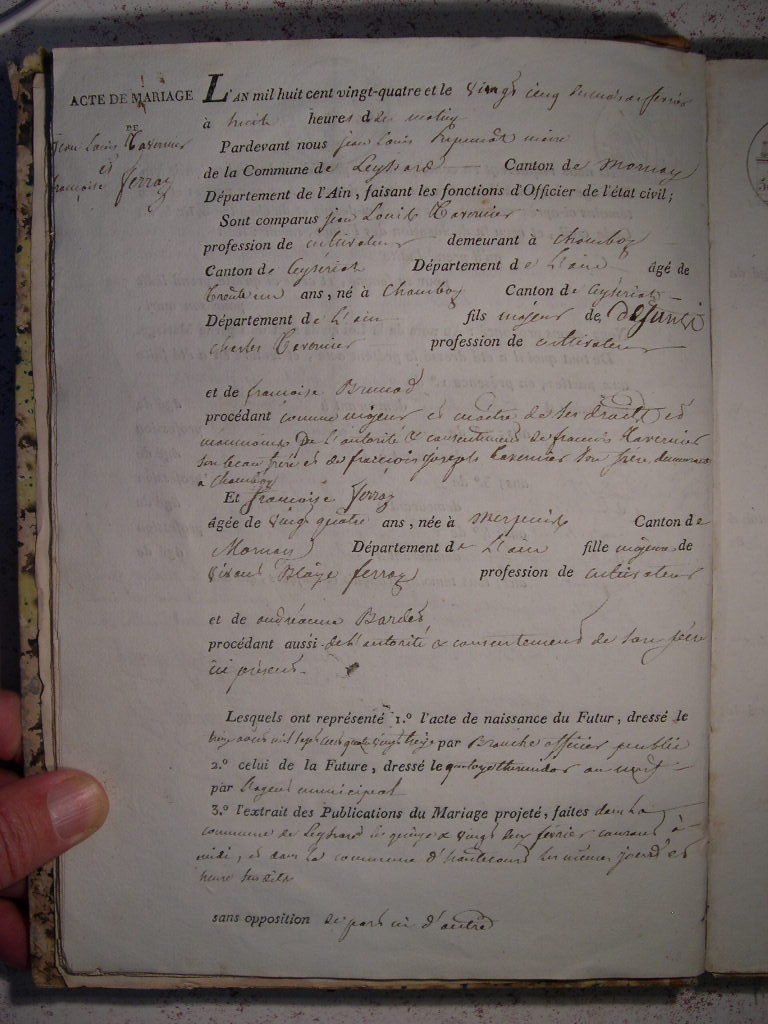 ACTE DE MARIAGE
DE
Jean Louis Tavernier
et
françoise ferraz
L'AN mil huit cent vingt-quatre et le vingt cinq du mois de fevrier
à huit heures du matin
Pardevant nous jean Louis maire
de la Commune de Leyssard Canton de Mornay
Département de l'Ain, faisant les fonctions d'Officier de l'état civil;
Sont comparus jean Louis Tavernier
profession de cultivateur demeurant à Chamboz
Canton de Ceyseriat Département de L'ain âgé de
Trente un ans, né à Chamboz Canton de Ceyseriat
Département de L'ain fils majeur de defunt
Charles Tavernier profession de cultivateur
et de françoise Brunod
procédant comme majeur et maitre de ses droits et
neanmoins De l'autorité & consentement de francois Tavernier
son beau frère et de françois joseph Tavernier son frère, demeurant
à Chamboz
Et françoise ferraz
âgée de vingt quatre ans, née à Canton de
Mornay Département de L'ain fille majeure de
vivant Blaise ferraz profession de cultivateur
et de andréanne Bardet
procédant aussi de l'autorité & consentement de son père
ici présent.
Lesquels ont représenté 1.º l'acte de naissance du Futur, dressé le
mil sept cent quatre vingt treize par officier public
2.º celui de la Future, dressé le quatorze thermidor an sept
par Rogent municipal
3.º l'extrait des Publications du Mariage projeté, faites dans La
commune de Leyssard les quinze & vingt deux fevrier courant à
midi, et dans la commune d'hautecourt les mêmes jours et
heure susdits
sans opposition de part ni d'autre